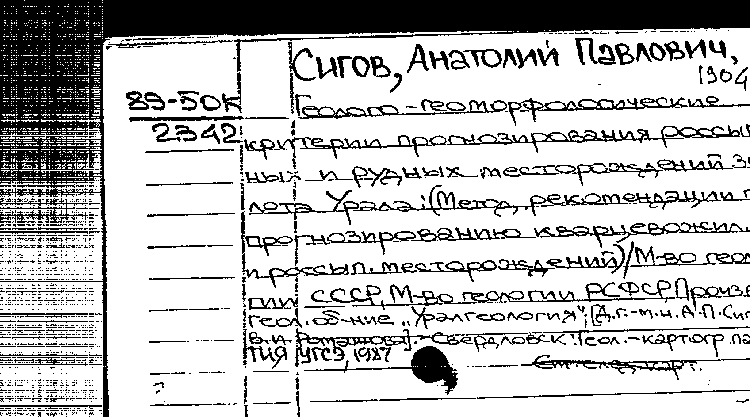 Сигов, Анатолий Павлович,
1904
89-50к
2342
Геолого-геоморфологические
критерии прогнозирования россып
ных и рудных месторождений з
лота Урала: (Метод. рекомендации п
прогнозированию кварцевожил.
и россып. месторождений)/М-во геол
гии СССР, М-во геологии РСФСР, Произв
геол. об-ние „Уралгеология"; [Д.г.-м.н. А.П. Сиг
В.И. Ромашова].-Свердловск: Геол.-картогр. па
тия УГСЭ, 1987
См. след. карт.